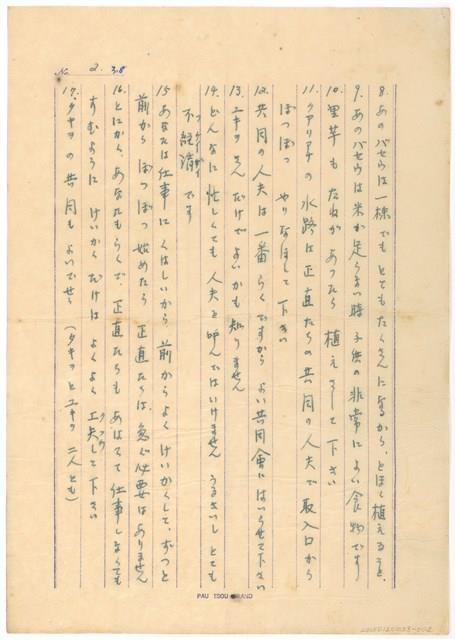 No. 2. 38
8. あのバセウは一株でもとてもたくさんになるから、とほく植えること、
9. あのバセウは米が足らない時 子供の非常によい食物です
10. 里芋もたねがあったら 植えさして下さい
11. クアリアナの水路は正直たちの共同の人夫で取入口から
ぼつぼつ やりなほして下さい
12. 共同の人夫は一番らくですから よい共同會にはいらせて下さい
13. ユキヲさんだけでよいかも知りません
14. どんなに忙しくても人夫を呼んではいけません うるさいし とても
不経済です
15 あなたは仕事にくはしいから 前からよくけいかくして、ずっと
前から ぼつぼつ始めたら 正直たちは、急ぐ必要はありません
16. とにかく、あなたもらくで、正直たちも あはてて仕事しなくても
すむように けいかくだけは よくよく 工夫して下さい
17. タキヲの共同もよいでせう (タキヲとユキヲ 二人とも)
PAU TSOU BRAND